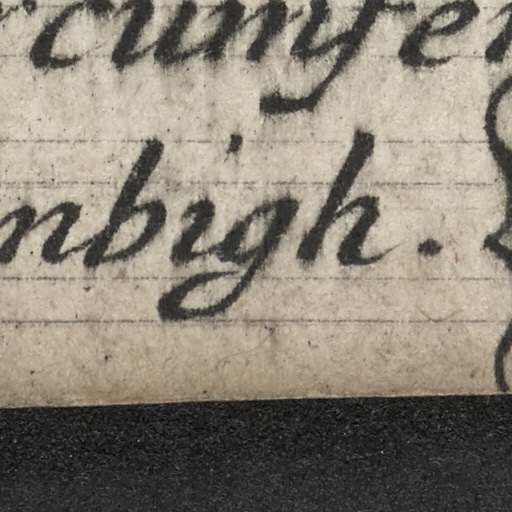 rcumfer
nbigh.